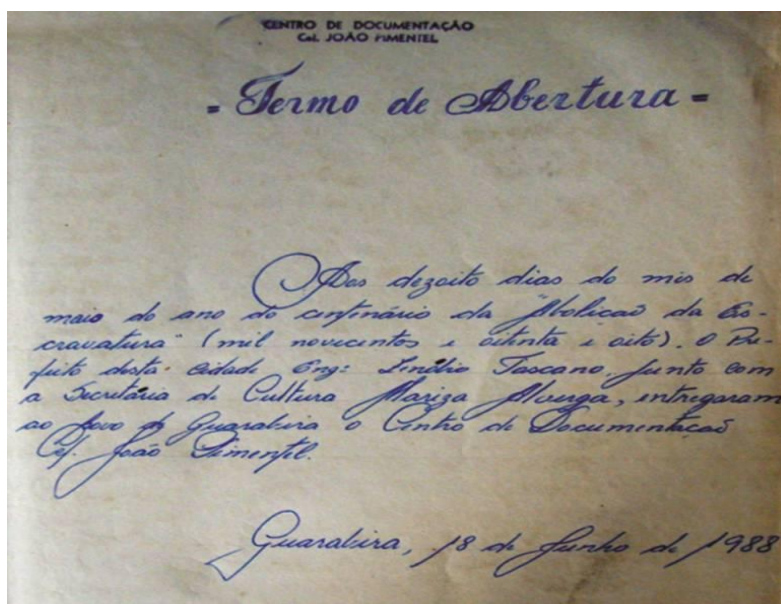 CENTRO DE DOCUMENTAÇÃO
Cel. JOÃO PIMENTEL
= Termo de Abertura =
Aos dezoito dias do mês de
maio do ano do centenário da "Abolicaõ da Es-
cravatura" (mil novecentos e oitenta e oito). O Pre-
feito desta cidade Eng: Zenóbio Toscano, junto com
a Secretária de Cultura Mariza Alverga, entregaram
ao Povo de Guarabira o Centro de Documentaçaõ
Cel. João Pimentel.
Guarabira, 18 de Junho de 1988